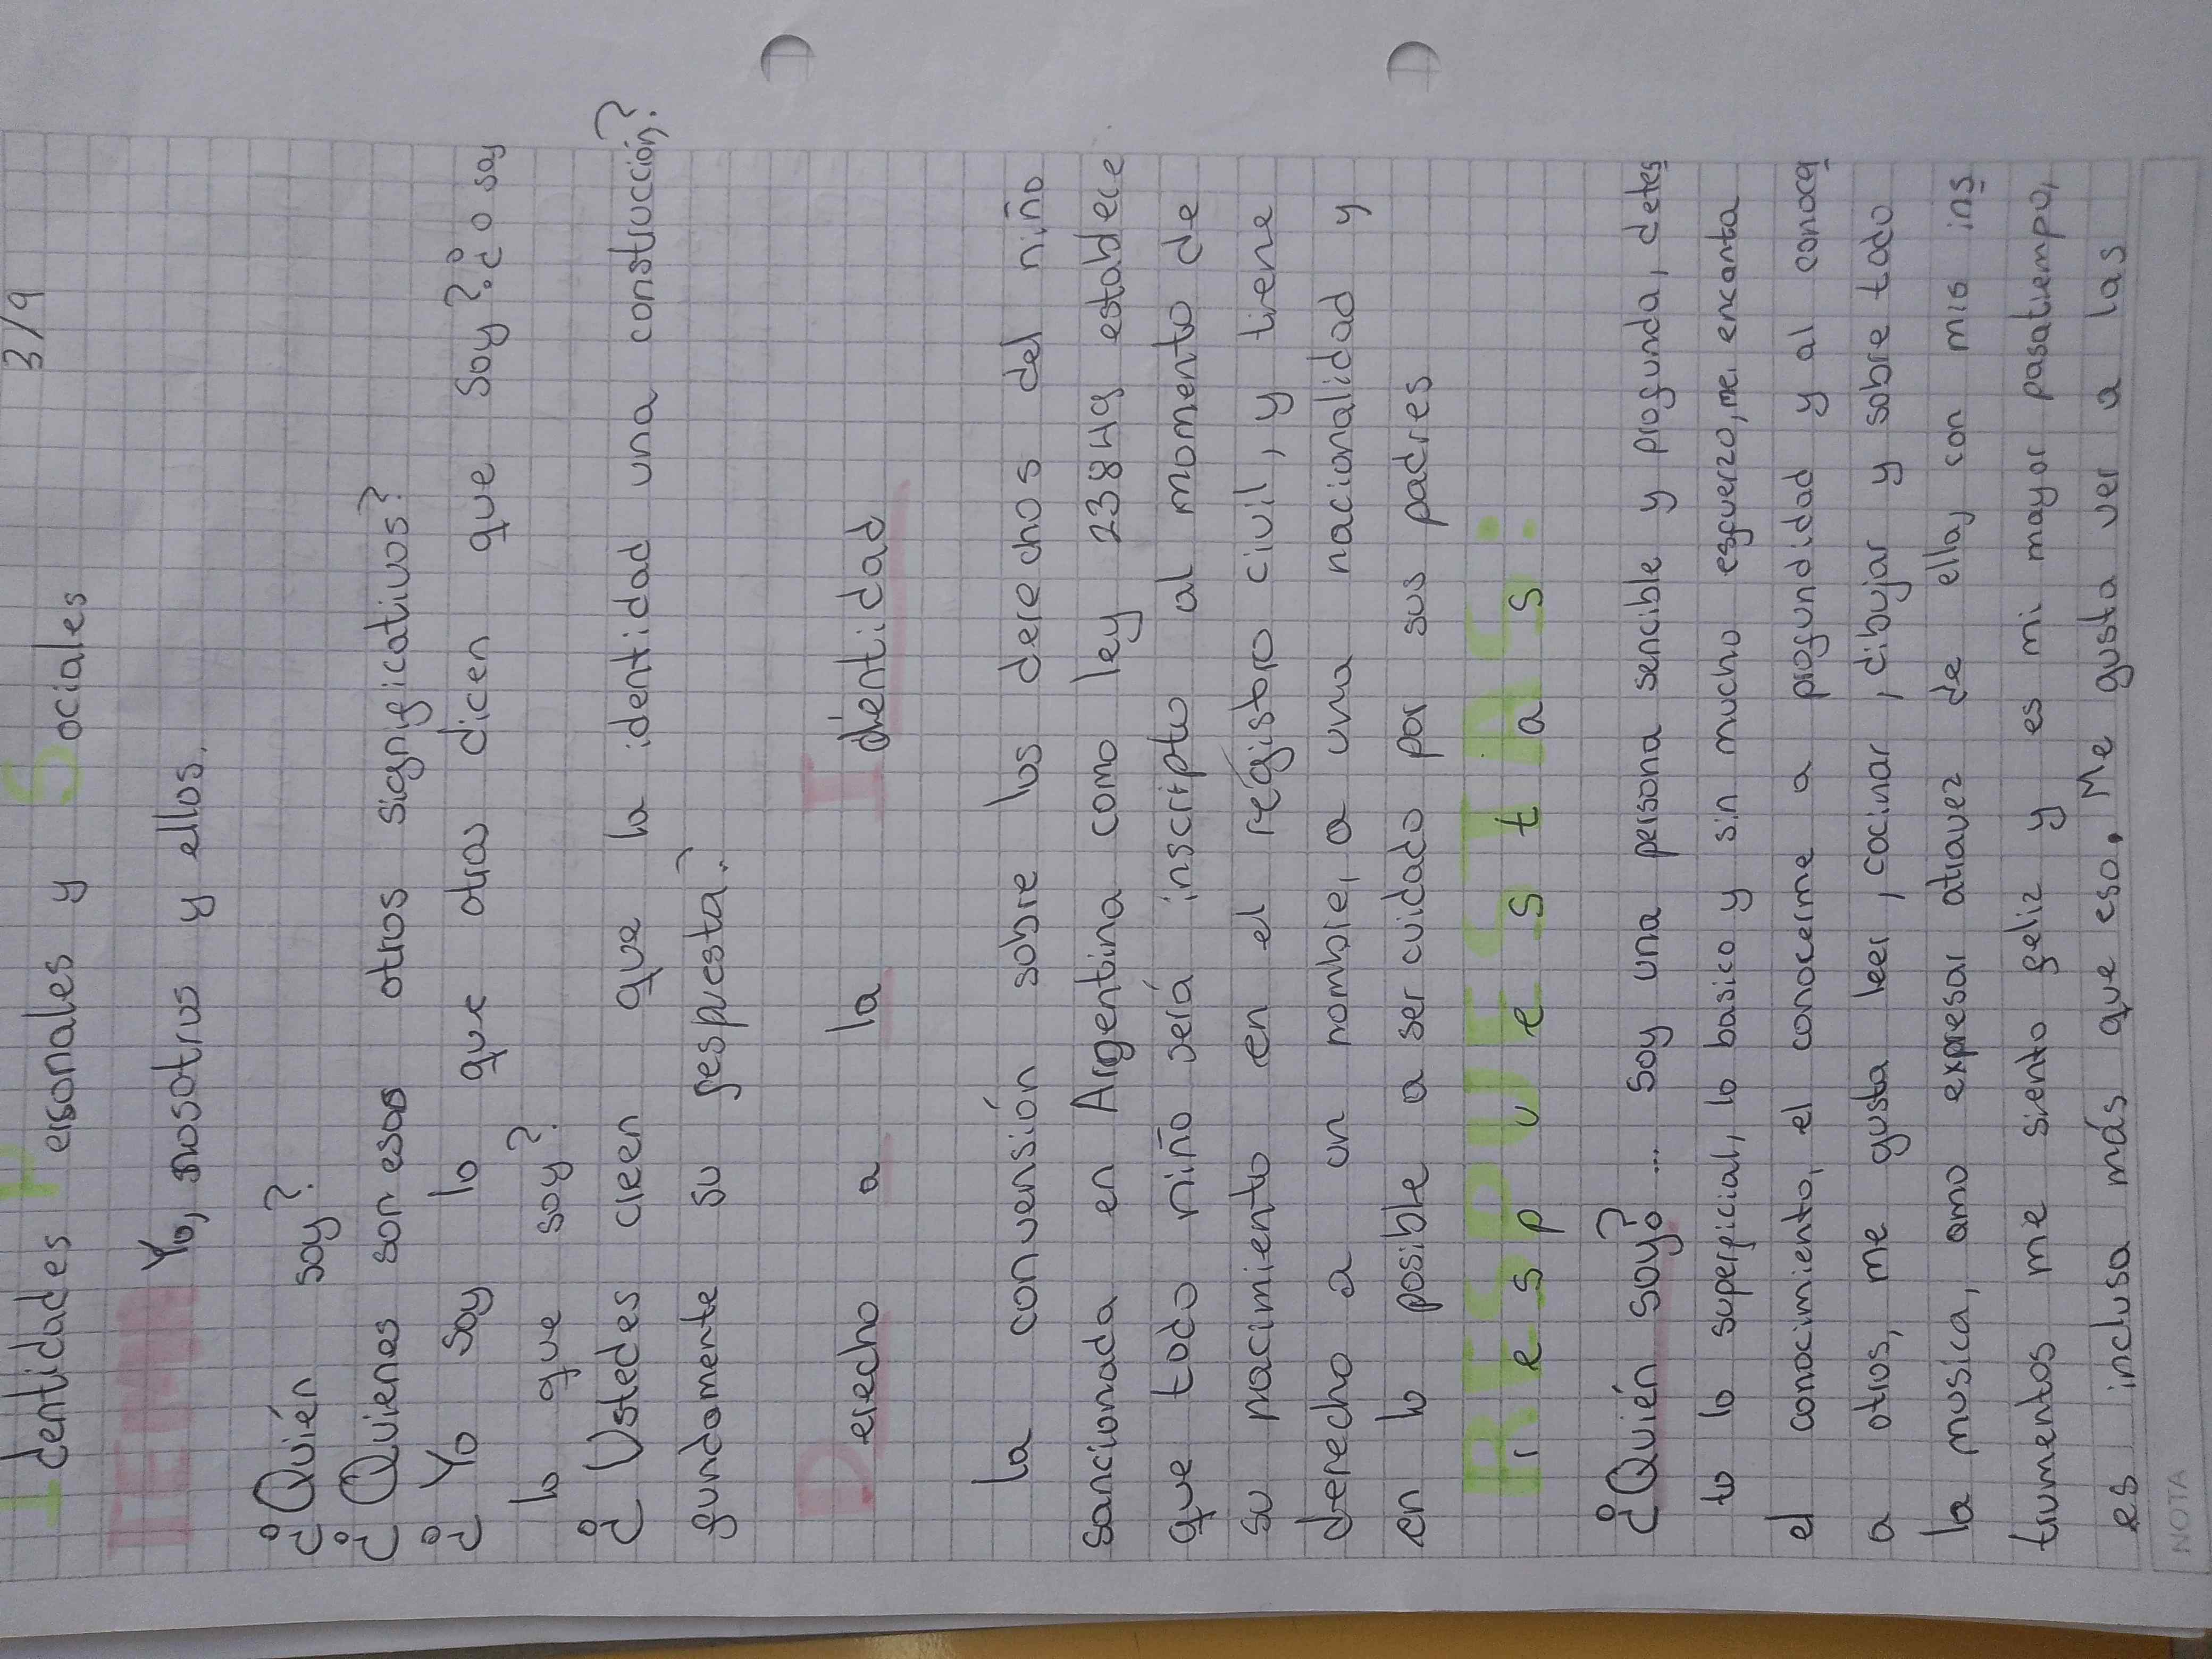 3/9
Identidades Personales y Sociales
TEMA Yo, nosotros y ellos.
¿Quién soy?
¿Quienes son esos otros significativos?
¿Yo soy lo que otros dicen que soy? ¿o soy
lo que soy?
¿Ustedes creen que la identidad una construcción?
fundamente su respuesta.
Derecho a la Identidad
la convensión sobre los derechos del niño
sancionada en Argentina como ley 23849 establece
que todo niño será inscripto al momento de
su nacimiento en el registro civil, y tiene
derecho a un nombre, a una nacionalidad y
en lo posible a ser cuidado por sus padres
RESPUESTAS:
respuestas
¿Quién soy? ... Soy una persona sencible y profunda, detes
to lo superficial, lo basico y sin mucho esfuerzo, me encanta
el conocimiento, el conocerme a profundidad y al conoca
a otros, me gusta leer, cocinar, dibujar y sobre todo
la musica, amo expresar atravez de ella, con mis ins
trumentos me siento feliz y es mi mayor pasatiempo,
es inclusa más que eso. Me gusta ver a las
NOTA